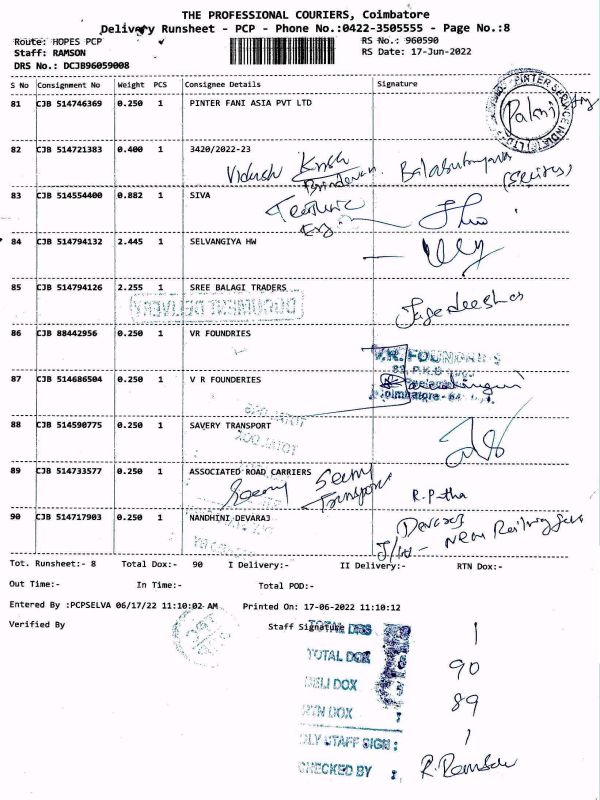 THE PROFESSIONAL COURIERS, Coimbatore
Delivery Runsheet - PCP - Phone No.:0422-3505555 - Page No.:8
Route: HOPES PCP
RS No.: 960590
Staff: RAMSON
RS Date: 17-Jun-2022
DRS No.: DCJB96059008
S No Consignment No Weight PCS Consignee Details Signature
81 CJB 514746369 0.250 1 PINTER FANI ASIA PVT LTD
82 CJB 514721383 0.400 1 3420/2022-23
83 CJB 514554400 0.882 1 SIVA
84 CJB 514794132 2.445 1 SELVANGIYA HW
85 CJB 514794126 2.255 1 SREE BALAGI TRADERS
DOCUMENT DELIVERY
86 CJB 88442956 0.250 1 VR FOUNDRIES
V.R. FOUNDRIES
87 CJB 514686504 0.250 1 V R FOUNDERIES
Coimbatore
88 CJB 514590775 0.250 1 SAVERY TRANSPORT
TOTAL DOX
89 CJB 514733577 0.250 1 ASSOCIATED ROAD CARRIERS
Transport
90 CJB 514717903 0.250 1 NANDHINI DEVARAJ
Devaraj
Near Railway Gate
Tot. Runsheet:- 8 Total Dox:- 90 I Delivery:- II Delivery:- RTN Dox:-
Out Time:- In Time:- Total POD:-
Entered By :PCPSELVA 06/17/22 11:10:02 AM Printed On: 17-06-2022 11:10:12
Verified By Staff Signature
TOTAL DRS 1
TOTAL DOX 90
DELI DOX 89
RTN DOX : 1
DLY STAFF SIGN :
CHECKED BY : R. Ramson